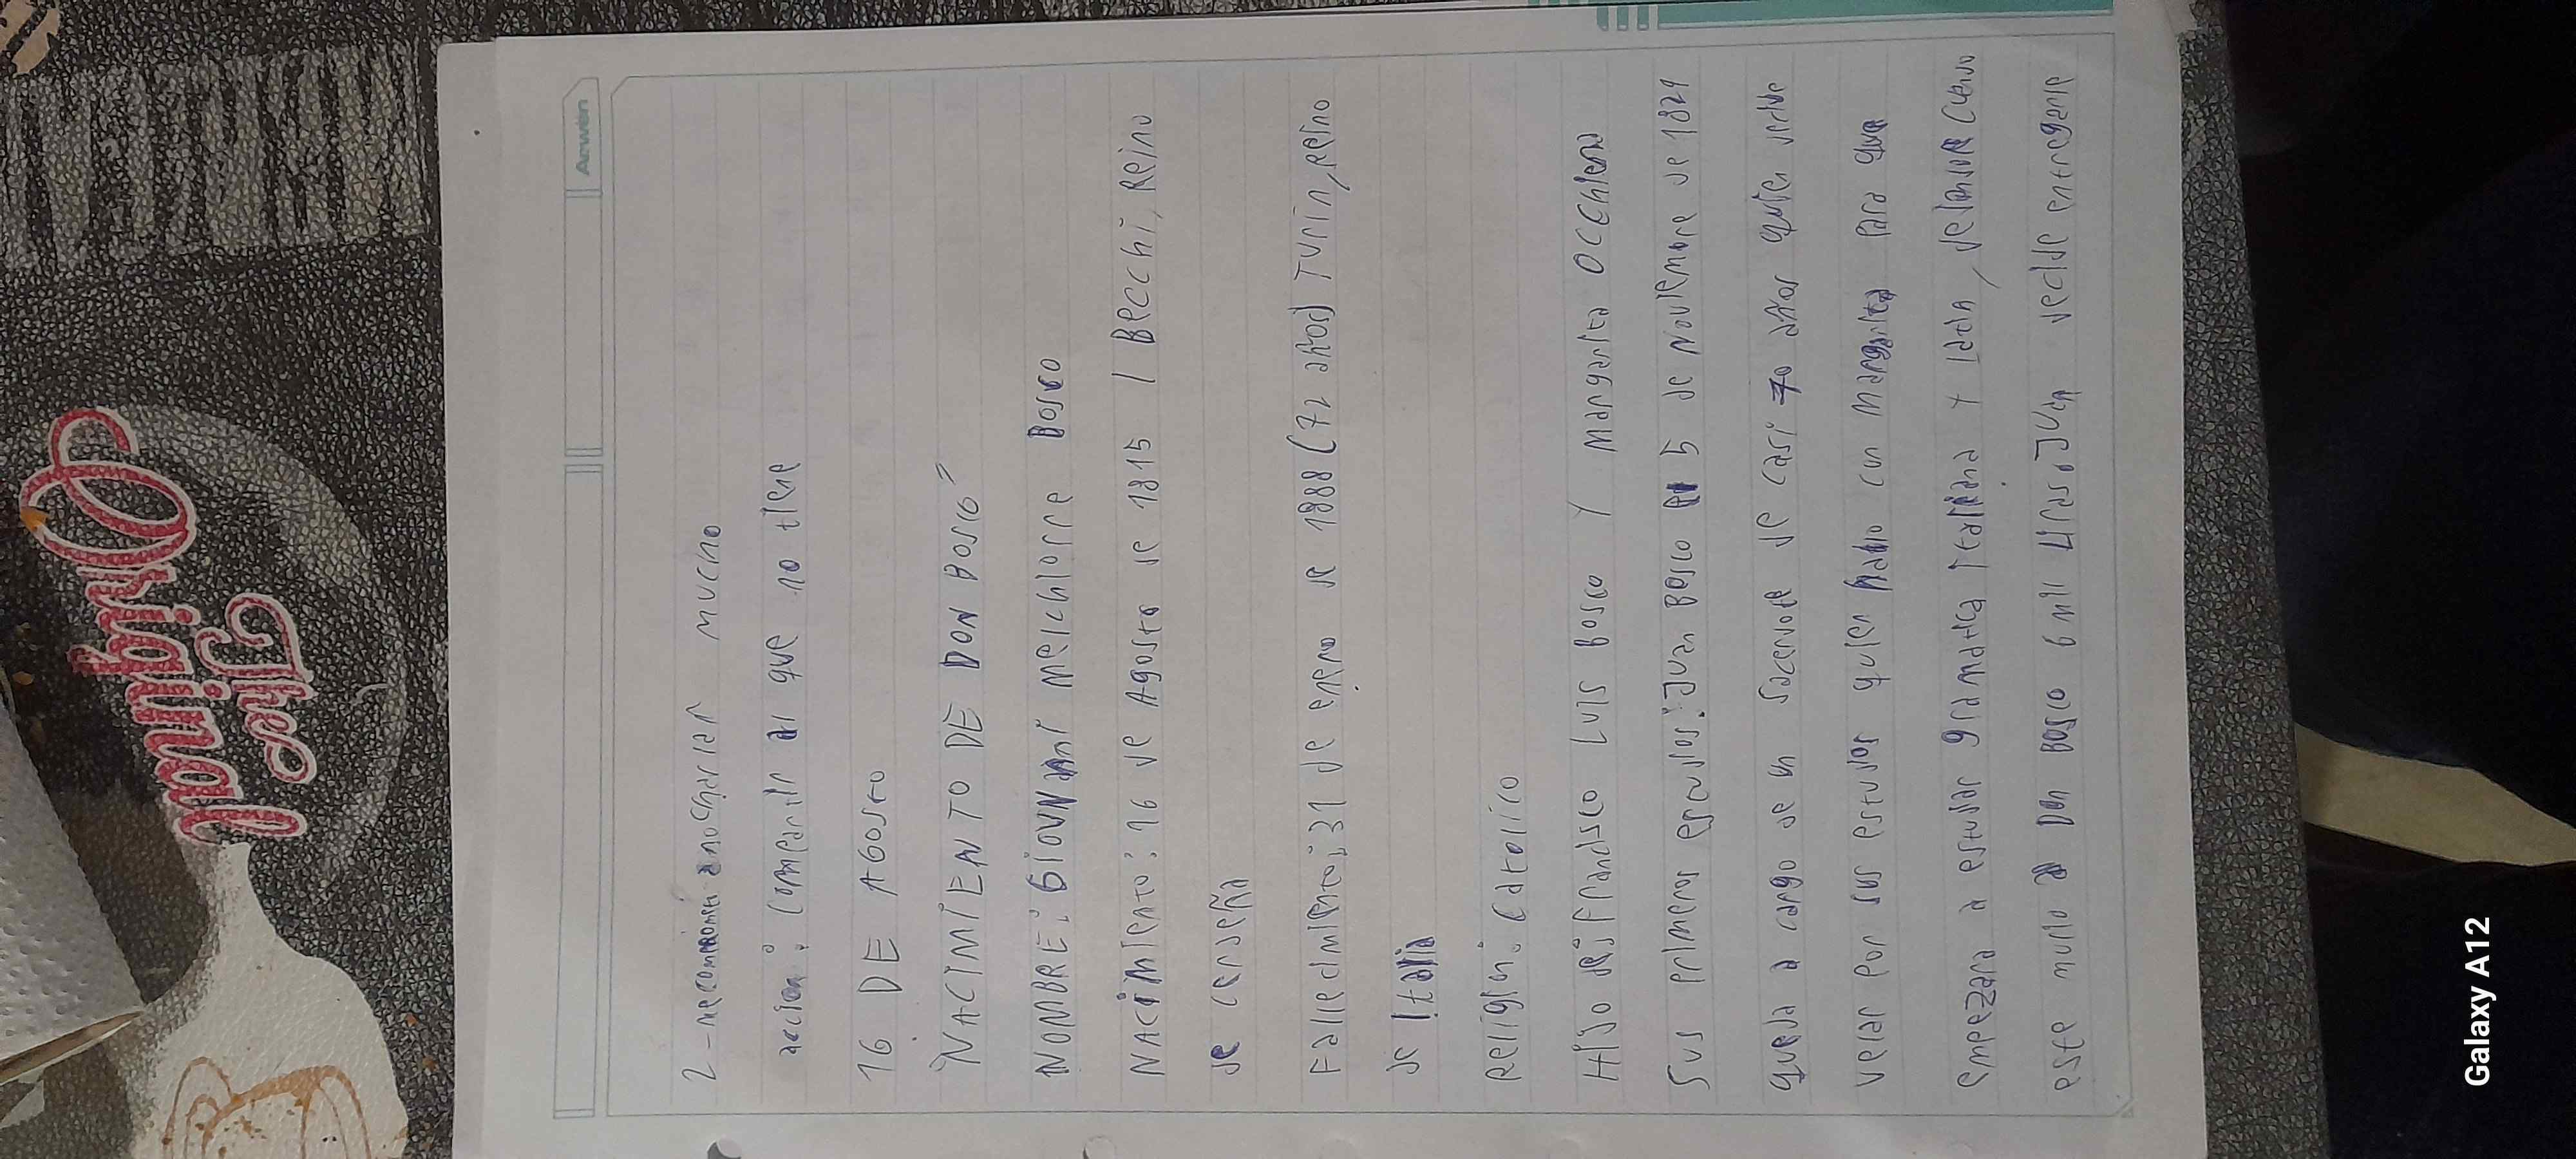 The
Original
Arwen
2-
mucho
accion: compartir al que no tiene
16 DE AGOSTO
"NACIMIENTO DE DON BOSCO"
NOMBRE: GIOVANNI Melchiorre Bosco
NACIMIENTO: 16 de Agosto de 1815 I Becchi, Reino
de Cerdeña
Falleclmiento: 31 de enero de 1888 (72 años) Turin, reino
de Italia
religion: Catolico
HIJO de: francisco Luis Bosco Y Margarita Occhiena
Sus primeros estudios: Juan Bosco 5 de Noviembre de 1829
queda a cargo de un sacerdote de casi 70 años quien
velar por sus estudios quien hablo con Margarita para que
empezara a estudiar gramatica Italiana Y latin,
este murio Don Bosco 6 mil liras. Juan decide entregarle
Galaxy A12